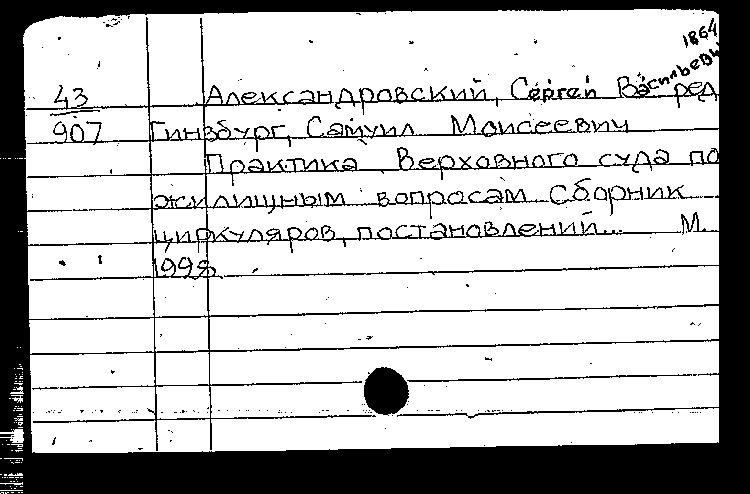 1864
43 Александровский, Сергей Васильевич ред
907 Гинзбург, Самуил Моисеевич
Практика Верховного суда по
жилищным вопросам Сборник
циркуляров, постановлений... М.
1998